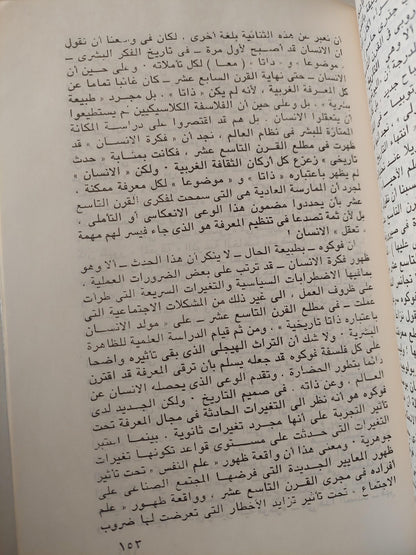 أن نعبر عن هذه الثنائية بلغة أخرى ، لكان فى وسعنا أن نقول
أن الانسان قد أصبح لأول مرة ــ فى تاريخ الفكر البشرى ــ
« موضوعا » و « ذاتا » ( معا ) لكل تأملاته . وعلى حين أن
الانسان ــ حتى نهاية القرن السابع عشر ــ كان غائبا تماما عن
كل المعرفة الغربية ، لأنه لم يكن « ذاتا » بل مجرد « طبيعة
بشرية » . بل وعلى حين أن الفلاسفة الكلاسيكيين لم يستطيعوا
أن يتعقلوا الانسان . بل هم قد اقتصروا على دراسة المكانة
الممتازة للبشر فى نظام العالم ، نجد أن « فكرة الانسان » قد
ظهرت فى مطلع القرن التاسع عشر ، فكانت بمثابة « حدث
تاريخى » زعزع كل أركان الثقافة الغربية . ولكن « الانسان »
لم يظهر باعتباره « ذاتا » و « موضوعا » لكل معرفة ممكنة .
لمجرد أن الممارسة العادية هى التى سمحت لمفكرى القرن التاسع
عشر بأن يحددوا مضمون هذا الوعى الانعكاسى أو التأملى ،
بل لأن ثمة تصدعا فى تنظيم المعرفة هو الذى جاء فيسر لهم مهمة
تعقل « الانسان » !
ان فوكوه ــ بطبيعة الحال ــ لا ينكر أن هذا الحدث ــ ألا وهو
ظهور فكرة الانسان ــ قد ترتب على بعض الضرورات العملية ،
بما فيها الاضطرابات السياسية والتغيرات السريعة التى طرأت
على ظروف العمل ، الى غير ذلك من المشكلات الاجتماعية التى
عملت ــ فى مطلع القرن التاسع عشر ــ على « مولد الانسان
باعتباره ذاتا تاريخية » ، ومن ثم قيام الدراسة العلمية للظاهرة
البشرية . ولا شك أن التراث الهيجلى الذى بقى تأثيره واضحا
على كل فلسفة فوكوه قد جعله يسلم بأن ترقى المعرفة قد اقترن
دائما بتطور الحضارة ، وتقدم الوعى الذى يحصله الانسان عن
العالم . وعن ذاته . فى صميم التاريخ . ولكن الجديد لدى
فوكوه هو أنه نظر الى التغيرات الحادثة فى مجال المعرفة تحت
تأثير التجربة على أنها مجرد تغيرات ثانوية . بينما اعتبر
التغيرات التى حدثت على مستوى قواعد تكونها تغيرات
جوهرية . ومعنى هذا أن واقعة ظهور « علم النفس » تحت تأثير
ظهور المعايير الجديدة التى فرضها المجتمع الصناعى على
أفراده فى مجرى القرن التاسع عشر ، وواقعة ظهور « علم
الاجتماع ، تحت تأثير تزايد الأخطار التى تعرضت لها ضروب
١٥٣